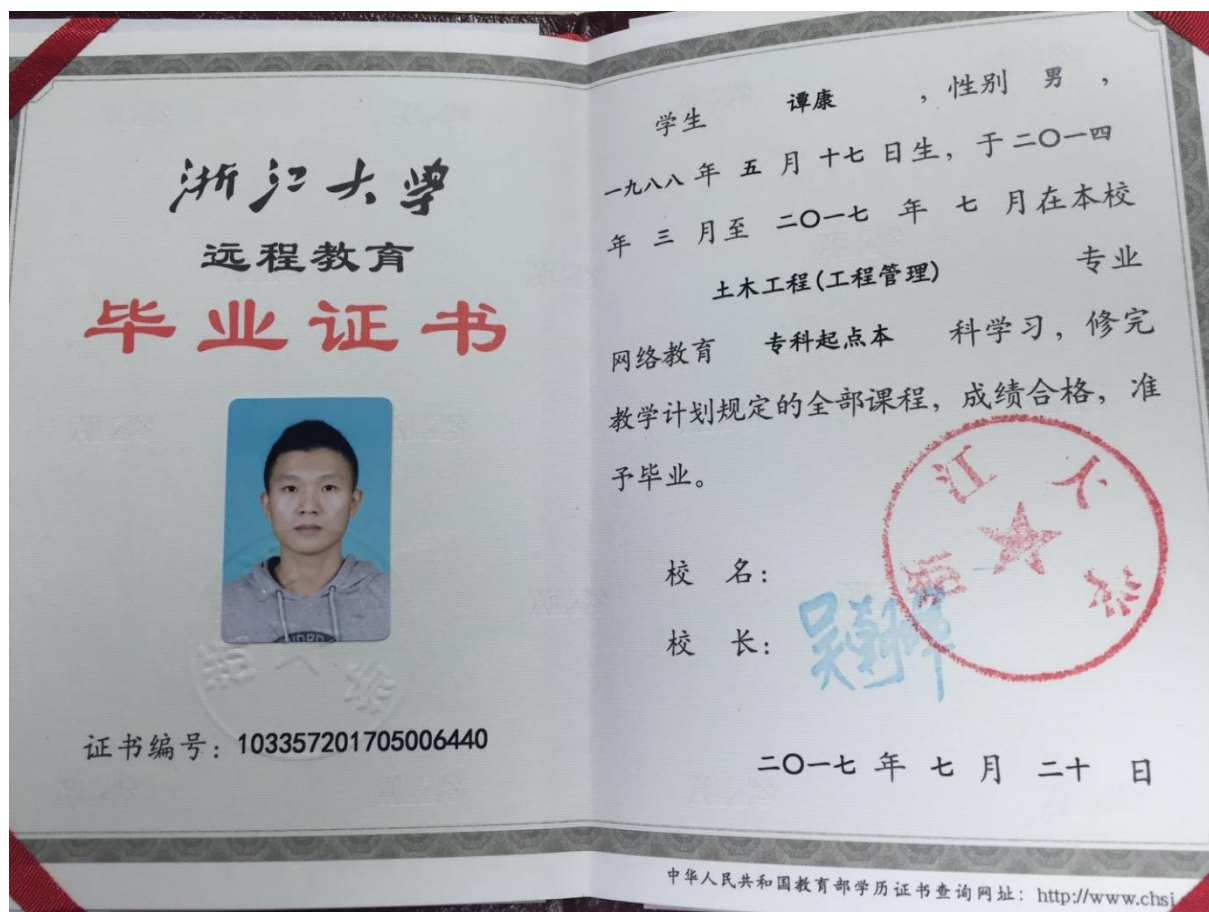 浙江大学
远程教育
毕业证书
证书编号：103357201705006440
学生 谭康 ，性别 男 ，
一九八八 年 五 月 十七 日生，于二〇一四
年 三 月至 二〇一七 年 七 月在本校
土木工程(工程管理) 专业
网络教育 专科起点本 科学习，修完
教学计划规定的全部课程，成绩合格，准
予毕业。
浙江大学
校 名：
校 长：吴朝晖
二〇一七 年 七 月 二十 日
中华人民共和国教育部学历证书查询网址：http://www.chsi